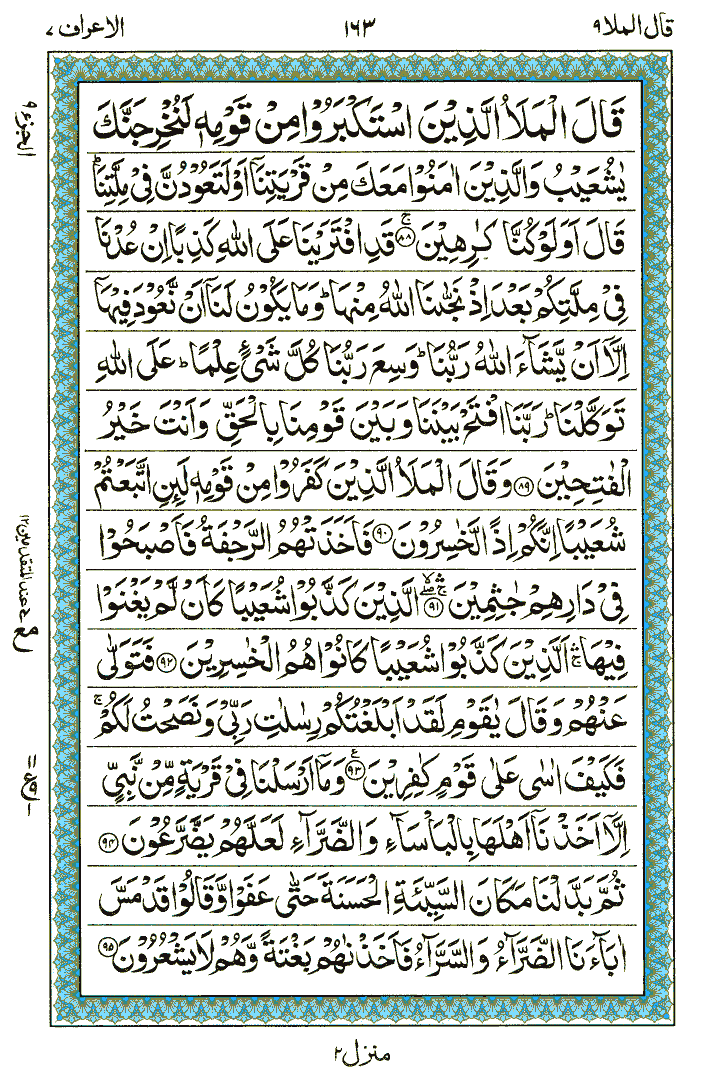 قال الملا ٩
١٦٣
الاعراف ٧
قَالَ الْمَلَاُ الَّذِيْنَ اسْتَكْبَرُوْا مِنْ قَوْمِهٖ لَنُخْرِجَنَّكَ
يٰشُعَيْبُ وَالَّذِيْنَ اٰمَنُوْا مَعَكَ مِنْ قَرْيَتِنَاۤ اَوْ لَتَعُوْدُنَّ فِيْ مِلَّتِنَا ؕ
قَالَ اَوَلَوْ كُنَّا كٰرِهِيْنَ ۚ﴿٨٨﴾ قَدِ افْتَرَيْنَا عَلَى اللّٰهِ كَذِبًا اِنْ عُدْنَا
فِيْ مِلَّتِكُمْ بَعْدَ اِذْ نَجّٰىنَا اللّٰهُ مِنْهَا ؕ وَمَا يَكُوْنُ لَنَاۤ اَنْ نَّعُوْدَ فِيْهَاۤ
اِلَّاۤ اَنْ يَّشَآءَ اللّٰهُ رَبُّنَا ؕ وَسِعَ رَبُّنَا كُلَّ شَيْءٍ عِلْمًا ؕ عَلَى اللّٰهِ
تَوَكَّلْنَا ؕ رَبَّنَا افْتَحْ بَيْنَنَا وَبَيْنَ قَوْمِنَا بِالْحَقِّ وَاَنْتَ خَيْرُ
الْفٰتِحِيْنَ ﴿٨٩﴾ وَقَالَ الْمَلَاُ الَّذِيْنَ كَفَرُوْا مِنْ قَوْمِهٖ لَئِنِ اتَّبَعْتُمْ
شُعَيْبًا اِنَّكُمْ اِذًا لَّخٰسِرُوْنَ ﴿٩٠﴾ فَاَخَذَتْهُمُ الرَّجْفَةُ فَاَصْبَحُوْا
فِيْ دَارِهِمْ جٰثِمِيْنَ ﴿٩١﴾ الَّذِيْنَ كَذَّبُوْا شُعَيْبًا كَاَنْ لَّمْ يَغْنَوْا
فِيْهَا ۛۚ اَلَّذِيْنَ كَذَّبُوْا شُعَيْبًا كَانُوْا هُمُ الْخٰسِرِيْنَ ﴿٩٢﴾ فَتَوَلّٰى
عَنْهُمْ وَقَالَ يٰقَوْمِ لَقَدْ اَبْلَغْتُكُمْ رِسٰلٰتِ رَبِّيْ وَنَصَحْتُ لَكُمْ ۚ
فَكَيْفَ اٰسٰى عَلٰى قَوْمٍ كٰفِرِيْنَ ﴿٩٣﴾ وَمَاۤ اَرْسَلْنَا فِيْ قَرْيَةٍ مِّنْ نَّبِيٍّ
اِلَّاۤ اَخَذْنَاۤ اَهْلَهَا بِالْبَاْسَآءِ وَالضَّرَّآءِ لَعَلَّهُمْ يَضَّرَّعُوْنَ ﴿٩٤﴾
ثُمَّ بَدَّلْنَا مَكَانَ السَّيِّئَةِ الْحَسَنَةَ حَتّٰى عَفَوْا وَّقَالُوْا قَدْ مَسَّ
اٰبَآءَنَا الضَّرَّآءُ وَالسَّرَّآءُ فَاَخَذْنٰهُمْ بَغْتَةً وَّهُمْ لَا يَشْعُرُوْنَ ﴿٩٥﴾
الجزء ٩
منزل ٢